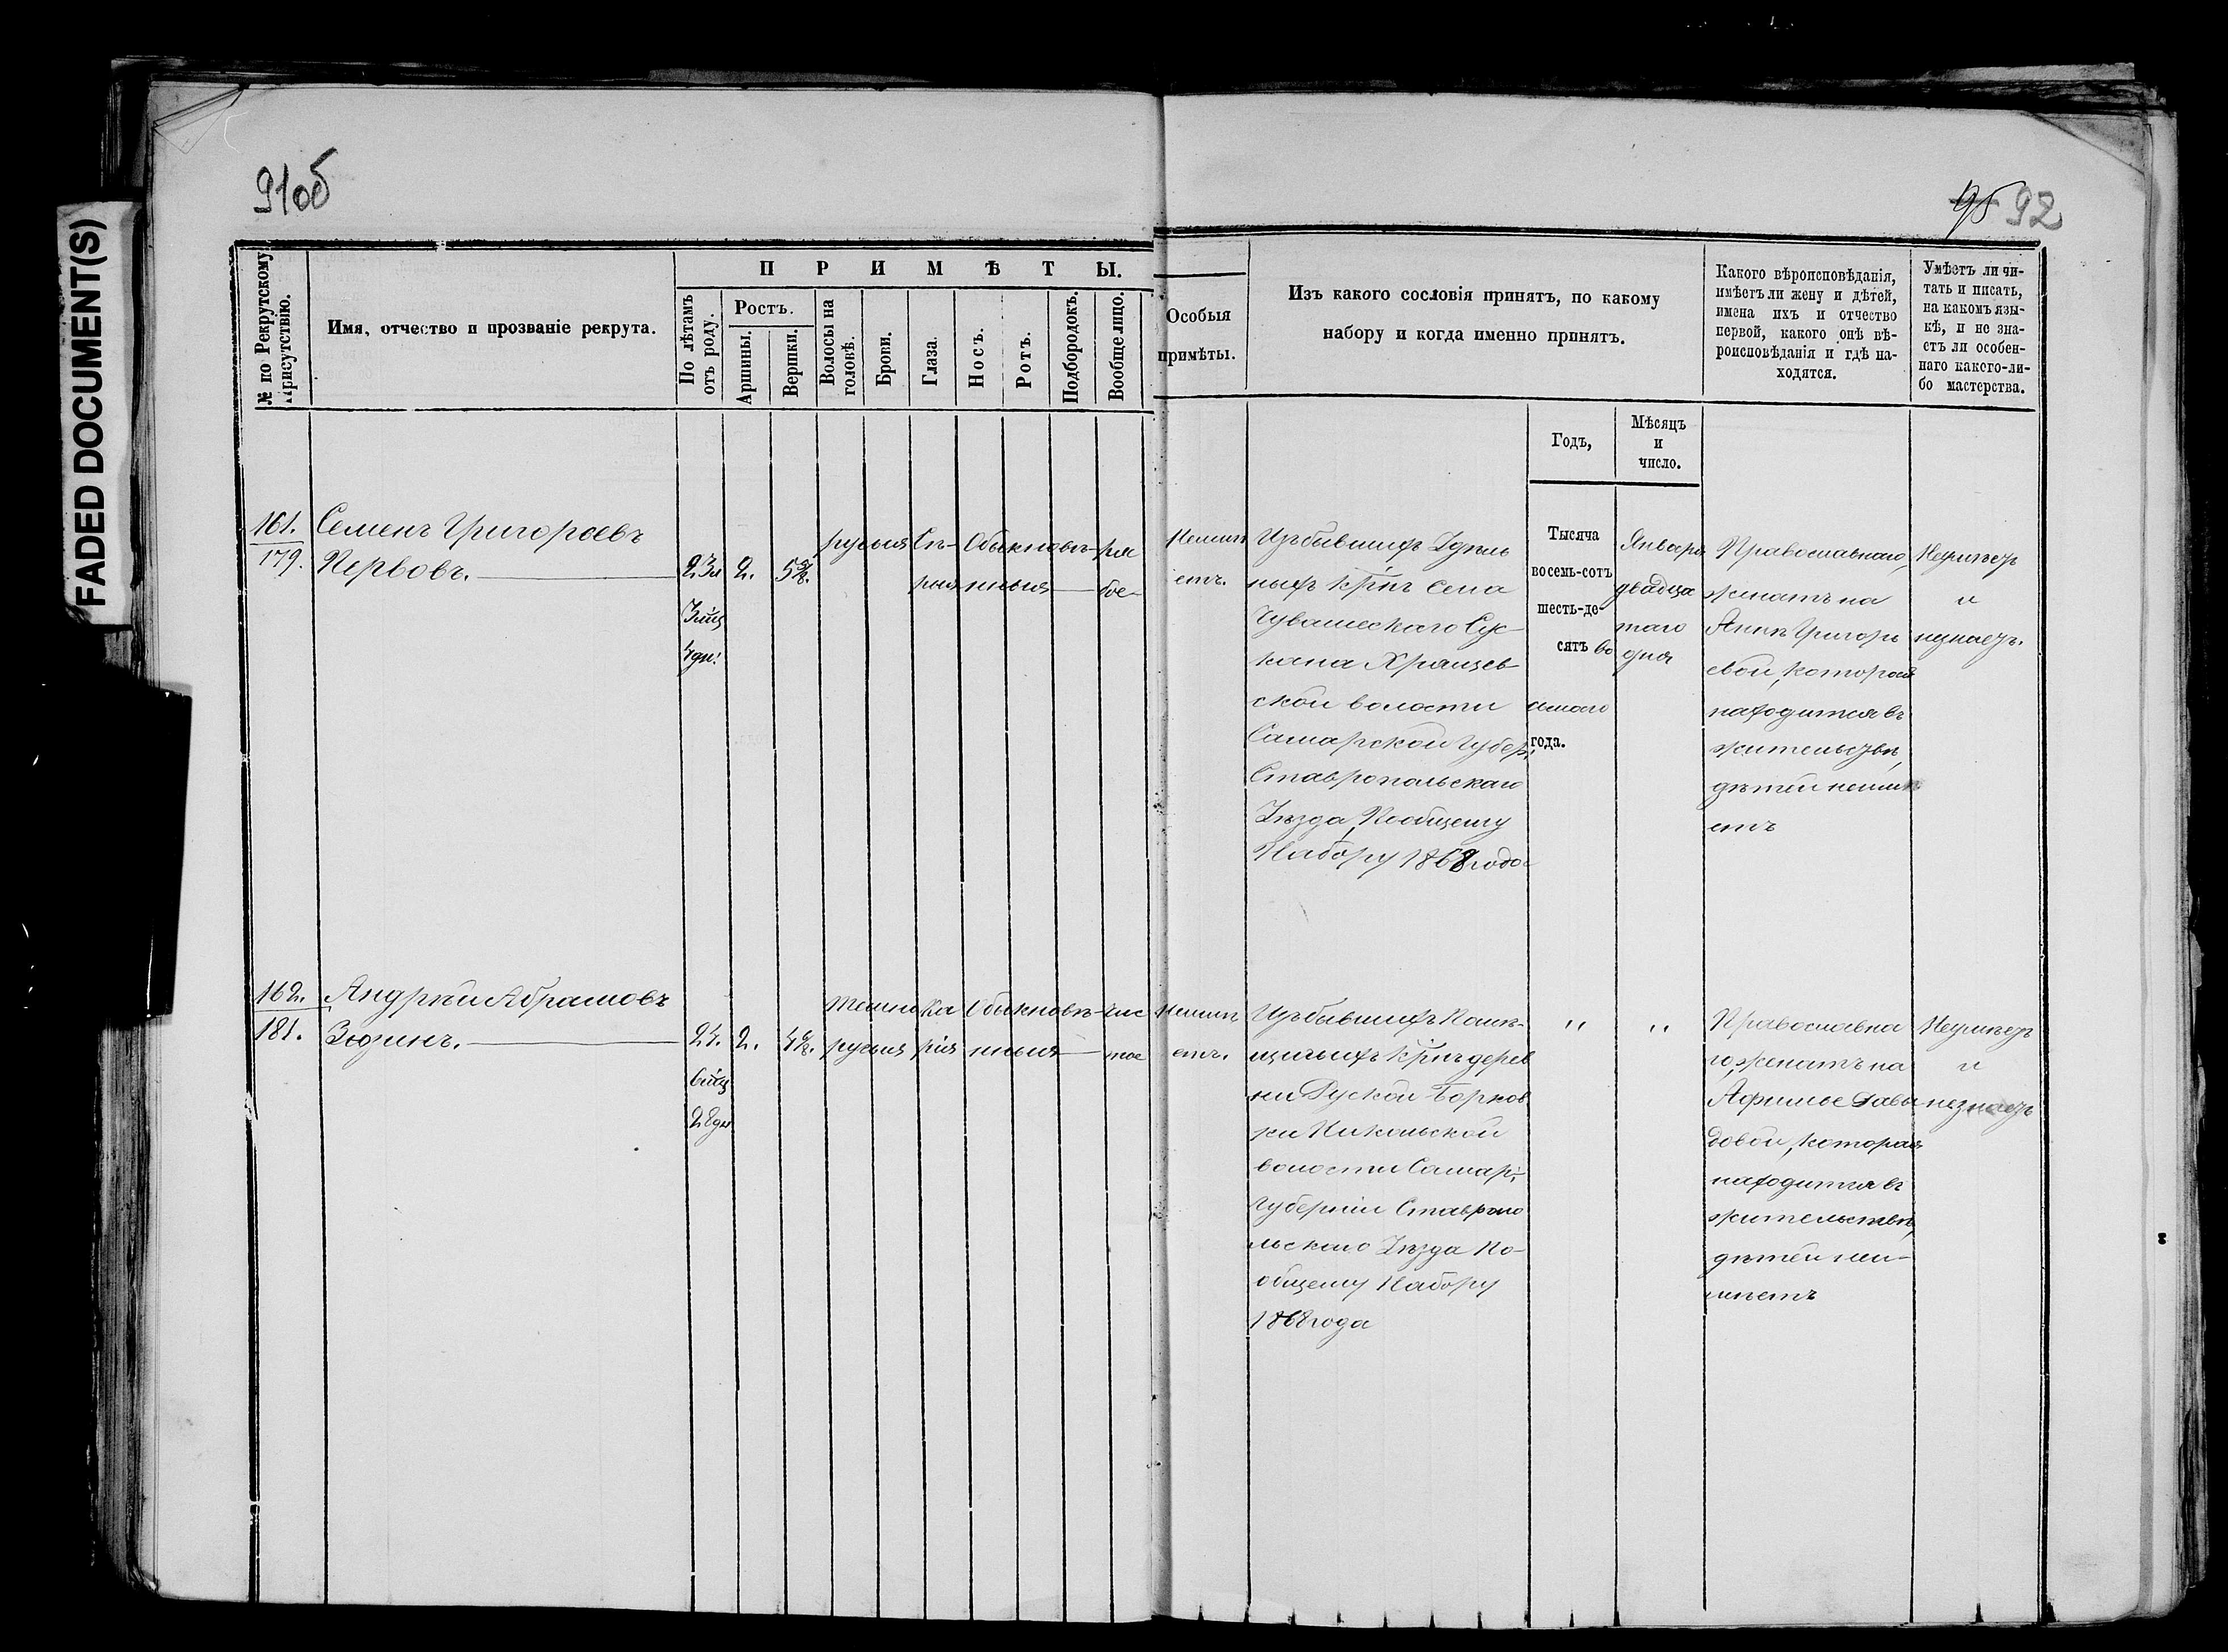 FADED DOCUMENT(S)
91об
95 92
№ по Рекрутскому присутствію.
Имя, отчество и прозваніе рекрута.
ПРИМѢТЫ.
По лѣтамъ отъ роду.
Ростъ.
Аршины.
Вершки.
Волосы на головѣ.
Брови.
Глаза.
Носъ.
Ротъ.
Подбородокъ.
Вообще лицо.
Особыя
примѣты.
Изъ какого сословія принятъ, по какому
набору и когда именно принятъ.
Какого вѣроисповѣданія,
имѣетъ ли жену и дѣтей,
имена ихъ и отчество
первой, какого онѣ вѣ-
роисповѣданія и гдѣ на-
ходятся.
Умѣетъ ли чи-
тать и писать,
на какомъ язы-
кѣ, и не зна-
етъ ли особен-
наго какого-ли-
бо мастерства.
Годъ,
Мѣсяцъ
и
число.
161.
179.
Семенъ Григорьевъ
Первовъ.
23л
3мц
4дн.
2.
5
русыя
Сѣ-
рыя
Обыкновѣ-
нныя
ря
бое
Неимѣ
етъ.
Изъ бывшихъ Удѣль
ныхъ крѣ села
Чувашскаго Сус
кана Хрящев
ской волости
Самарской Губер:
Ставропольскаго
Уѣзда, По общему
Набору 1868 года
Тысяча
восемь-сотъ
шесть-де-
сятъ во
сьмаго
года.
Января
двадца
таго
дня
Православнаго,
женатъ на
Аннѣ Григорь
евой, которая
находится въ
жительствѣ,
дѣтей неимѣ
етъ
Неумѣетъ
и
незнаетъ.
162.
181.
Андрѣй Абрамовъ
Зюзинъ.
24.
6мц
28дн
2.
4
темно
русыя
Ка
рія
Обыкновѣ-
нныя
чис
тое
Неимѣ
етъ.
Изъ бывшихъ Помѣ-
щичьихъ крѣ дерев
ни Руской Борков
ки Никольской
волости Самар:
Губерніи Ставропо
льскаго Уѣзда По-
общему Набору
1868 года
"
"
Православна
го, женатъ на
Афимье Давы
довой, которая
находится въ
жительствѣ,
дѣтей неи-
мѣетъ
Неумѣетъ
и
незнаетъ